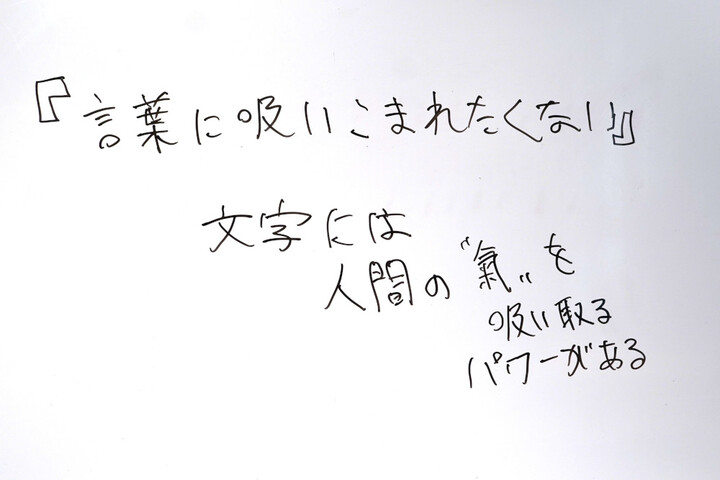 『言葉に吸いこまれたくない』
文字には
人間の〝氣〟を
吸い取る
パワーがある